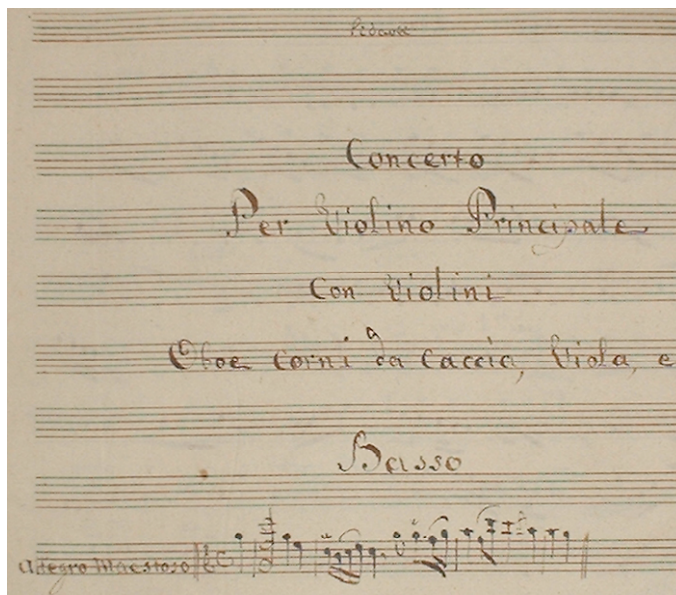 Concerto
Per Violino Principale
Con Violini
Oboe Corni da Caccia, Viola, e
Basso
Allegro Maestoso